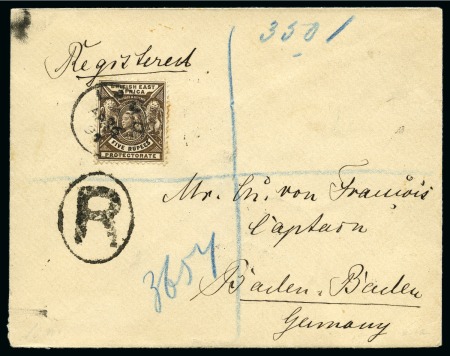 3501
Registered
BRITISH EAST
AFRICA
FIVE RUPEES
PROTECTORATE
R
Mr. von François
Captain
3657
Baden-Baden
Germany